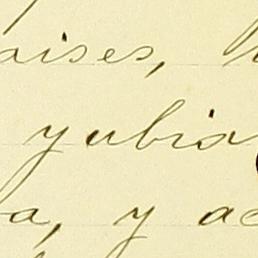 aises,
y ubia
a, y ac